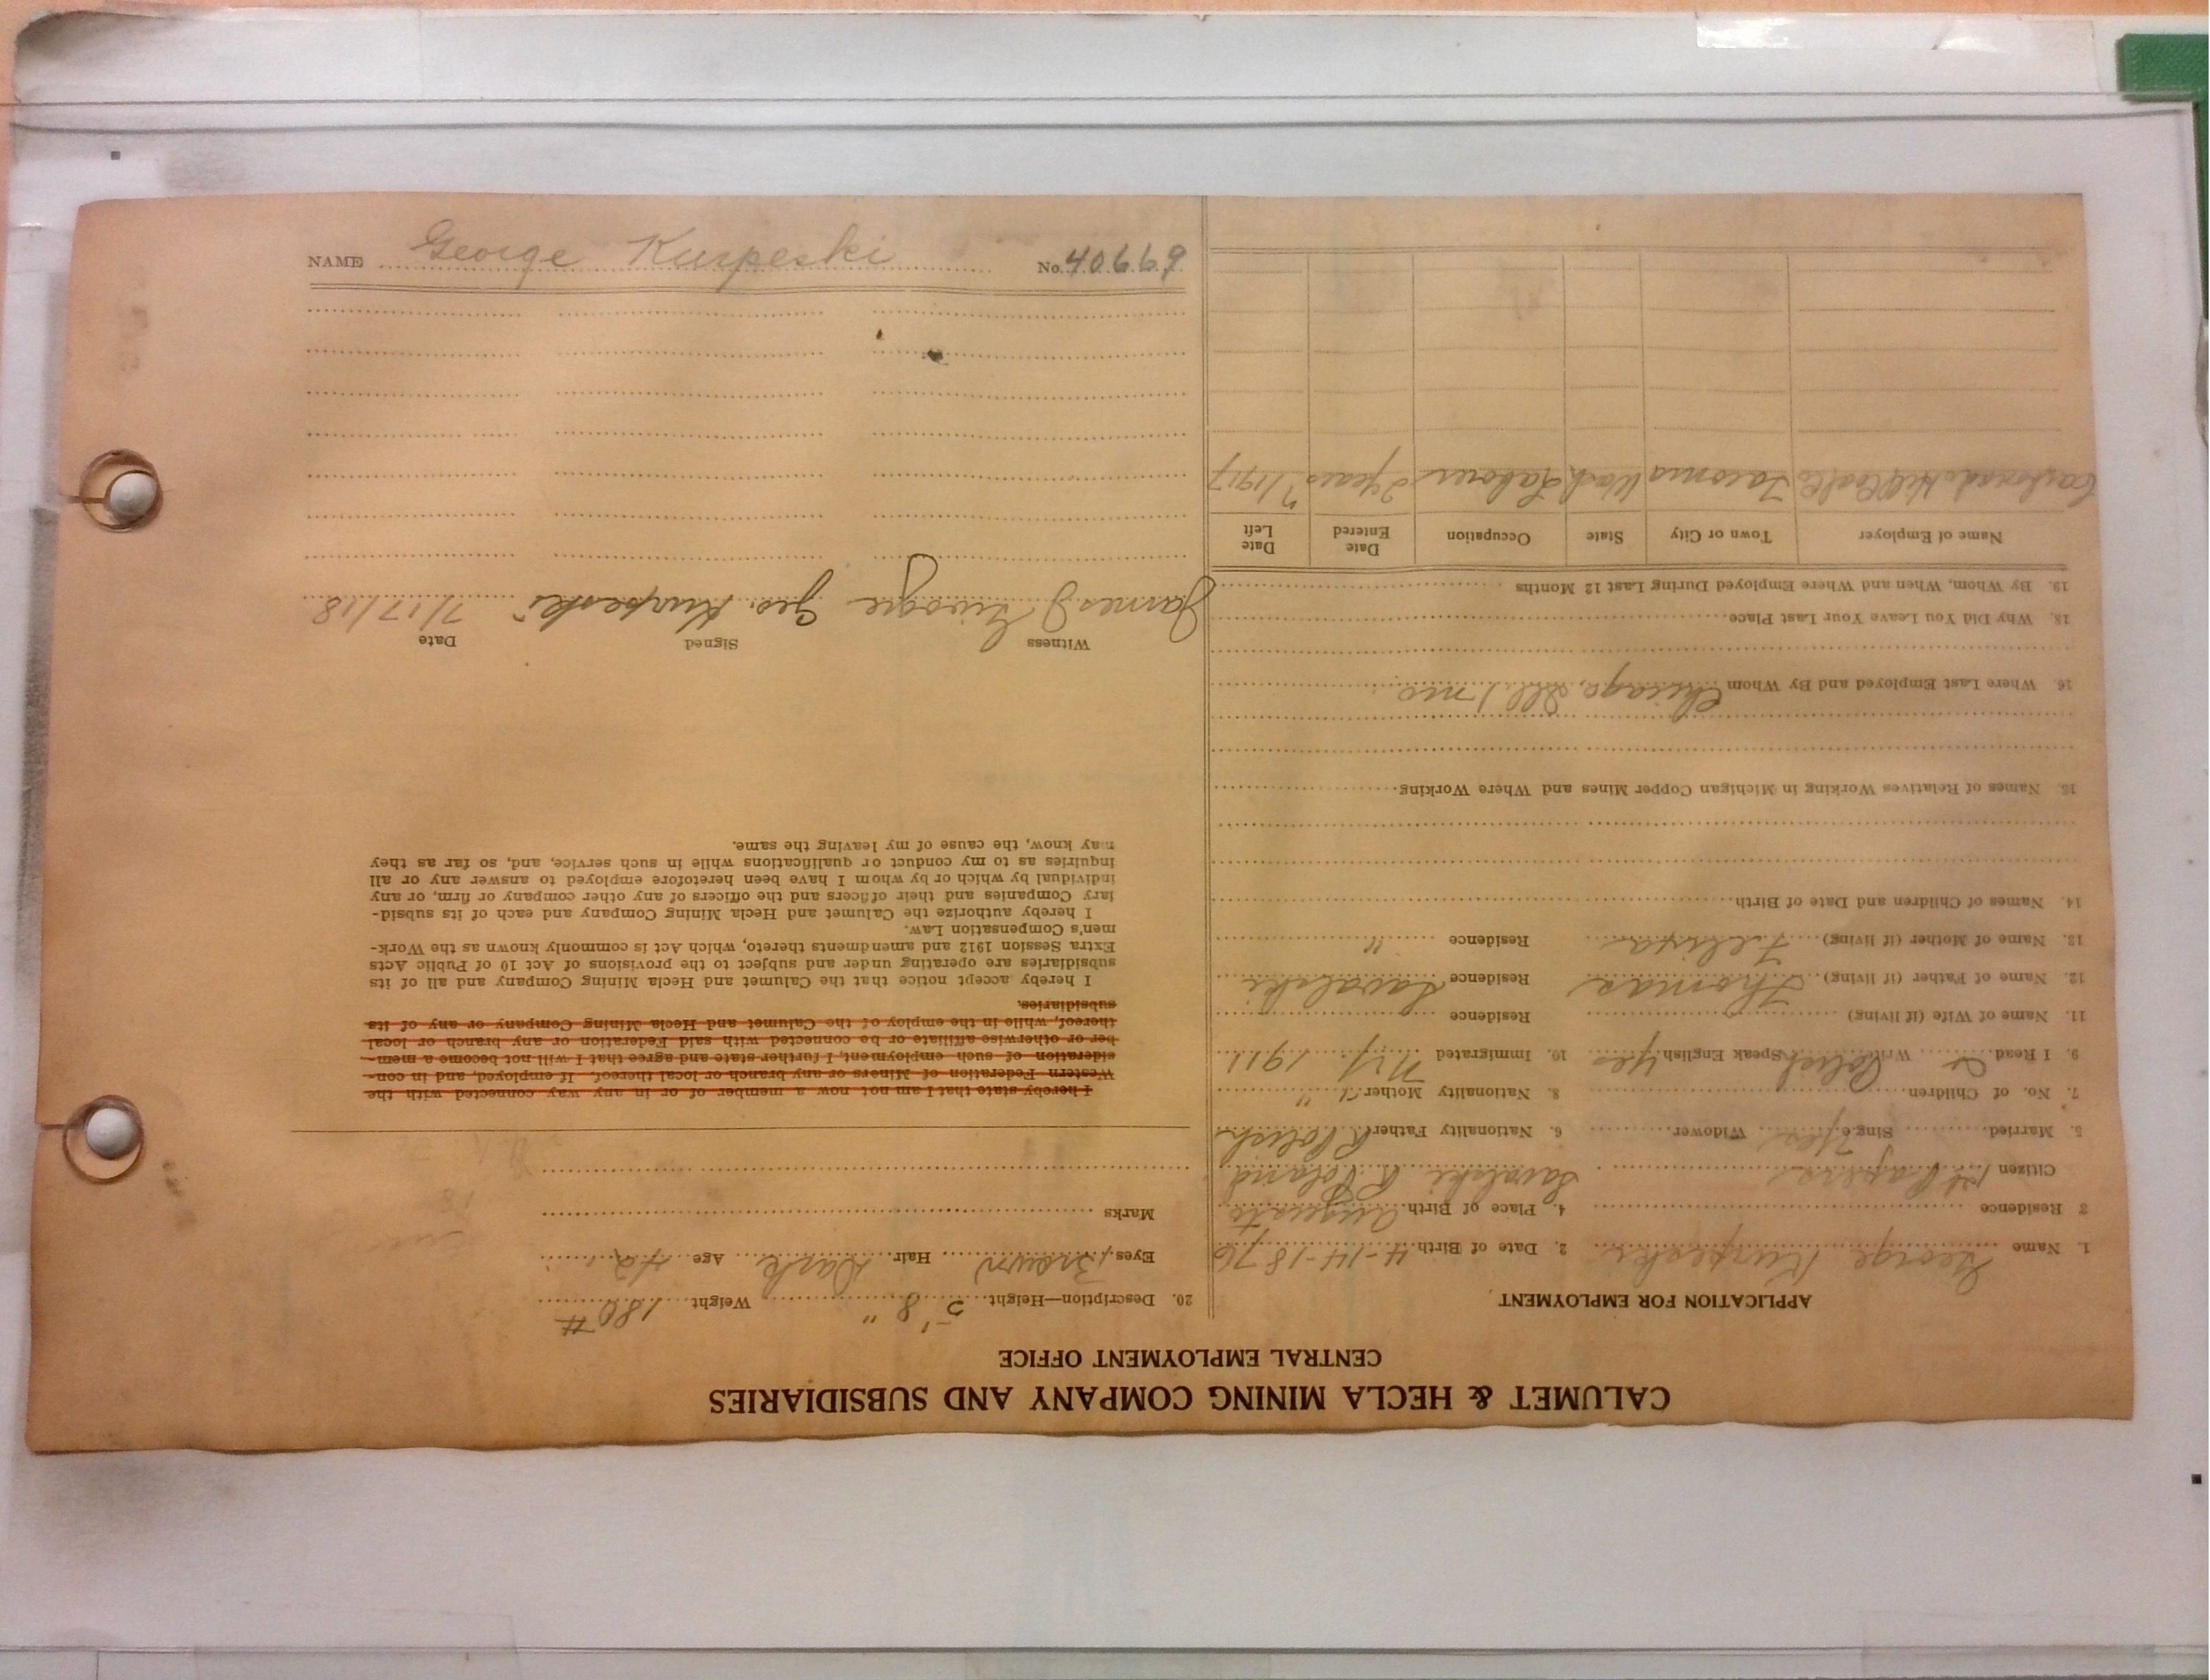 CALUMET & HECLA MINING COMPANY AND SUBSIDIARIES
CENTRAL EMPLOYMENT OFFICE
APPLICATION FOR EMPLOYMENT
1. Name George Kurpeski 2. Date of Birth 4-14-1876
3 Residence 4. Place of Birth
Citizen 1st Papers R Poland
5. Married Single Yes Widower 6. Nationality Father R Polish
7. No. of Children 8. Nationality Mother " "
9. I Read & Write Polish Speak English yes 10. Immigrated N.Y. 1911
11. Name of Wife (if living) Residence
12. Name of Father (if living) Thomas Residence
13. Name of Mother (if living) Residence "
14. Names of Children and Date of Birth
15. Names of Relatives Working in Michigan Copper Mines and Where Working
16. Where Last Employed and By Whom Chicago, Ill 1 mo.
18. Why Did You Leave Your Last Place
19. By Whom, When and Where Employed During Last 12 Months
Name of Employer Town or City State Occupation Date Entered Date Left
Carbonado Hill Coal Co Tacoma Wash Laborer 2 years 7/1917
20. Description—Height 5' 8" Weight 180 #
Eyes Brown Hair Dark Age 42
Marks
I hereby state that I am not now a member of or in any way connected with the
Western Federation of Miners or any branch or local thereof. If employed, and in con-
sideration of such employment, I further state and agree that I will not become a mem-
ber or otherwise affiliate or be connected with said Federation or any branch or local
thereof, while in the employ of the Calumet and Hecla Mining Company or any of its
subsidiaries.
I hereby accept notice that the Calumet and Hecla Mining Company and all of its
subsidiaries are operating under and subject to the provisions of Act 10 of Public Acts
Extra Session 1912 and amendments thereto, which Act is commonly known as the Work-
men's Compensation Law.
I hereby authorize the Calumet and Hecla Mining Company and each of its subsid-
iary Companies and their officers and the officers of any other company or firm, or any
individual by which or by whom I have been heretofore employed to answer any or all
inquiries as to my conduct or qualifications while in such service, and, so far as they
may know, the cause of my leaving the same.
Witness Signed Date
James J Geo. Kurpeski 7/17/18
NAME George Kurpeski No. 40669